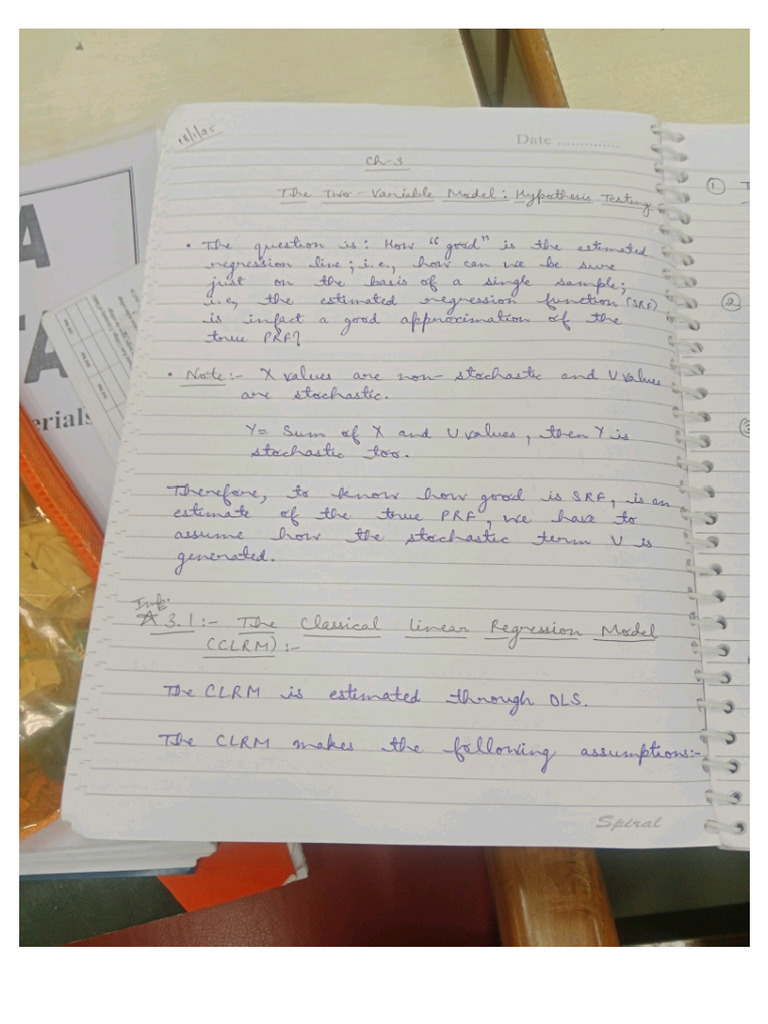 18/1/25
Date .............
Ch-3
The Two-Variable Model: Hypothesis Testing
• The question is: How "good" is the estimated
regression line; i.e., how can we be sure
just on the basis of a single sample;
i.e, the estimated regression function (SRF)
is infact a good approximation of the
true PRF?
• Note:- X values are non-stochastic and U values
are stochastic.
Y= Sum of X and U values, then Y is
stochastic too.
Therefore, to know how good is SRF, is an
estimate of the true PRF, we have to
assume how the stochastic term U is
generated.
Imp:
☆ 3.1:- The Classical Linear Regression Model
(CLRM):-
The CLRM is estimated through OLS.
The CLRM makes the following assumptions:-
Spiral
A
TA
erials
1
T
2
3